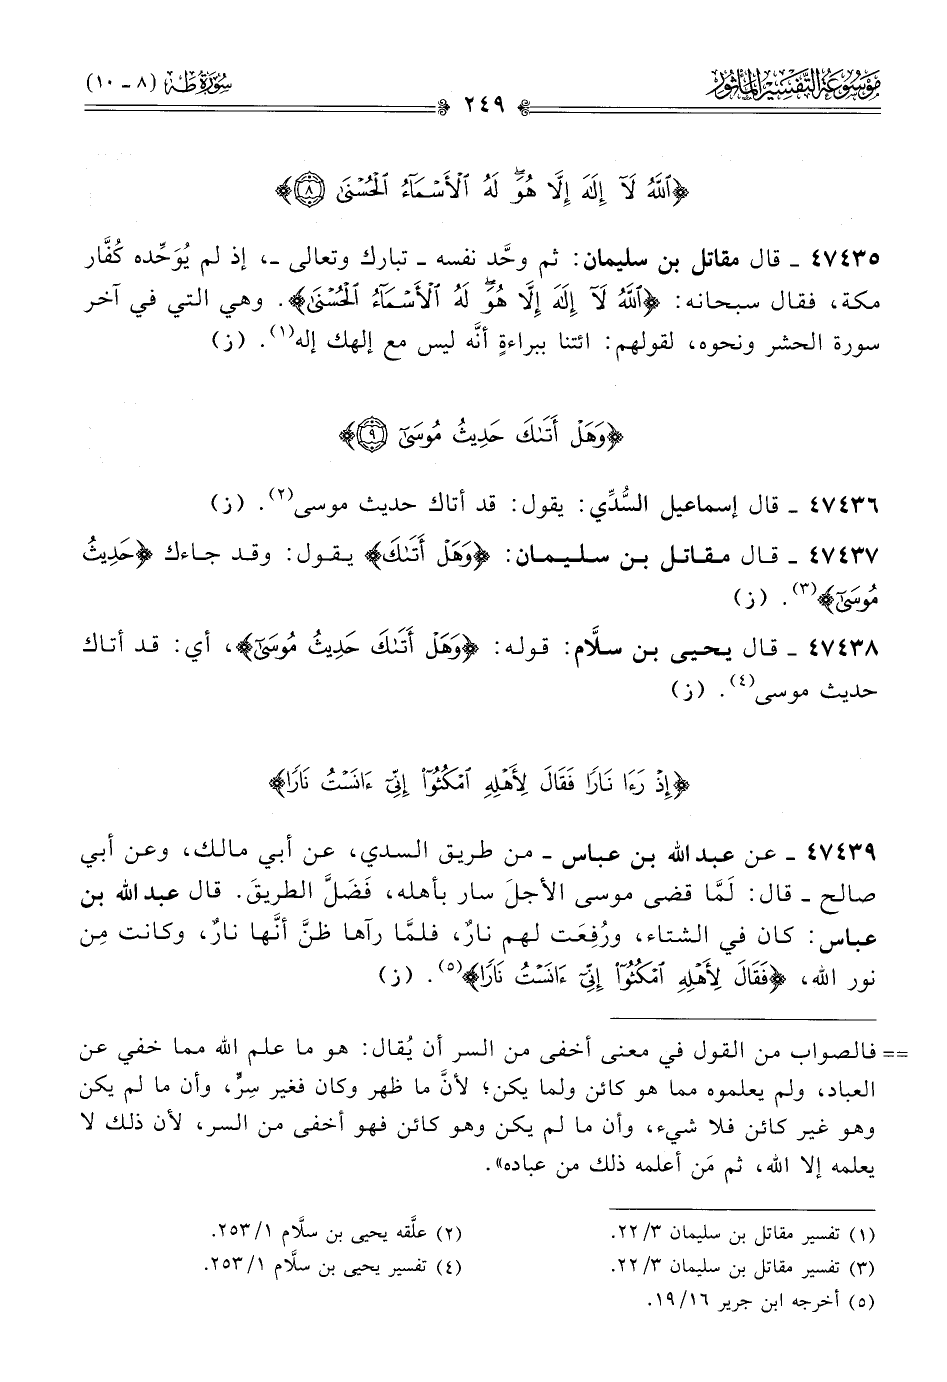 موسوعة التفسير المأثور
سورة طه (٨ - ١٠)
٢٤٩
﴿ٱللَّهُ لَآ إِلَٰهَ إِلَّا هُوَۖ لَهُ ٱلْأَسْمَآءُ ٱلْحُسْنَىٰ ٨﴾
٤٧٤٣٥ ـ قال مقاتل بن سليمان: ثم وحَّد نفسه ـ تبارك وتعالى ـ، إذ لم يُوَحِّده كُفَّار
مكة، فقال سبحانه: ﴿ٱللَّهُ لَآ إِلَٰهَ إِلَّا هُوَۖ لَهُ ٱلْأَسْمَآءُ ٱلْحُسْنَىٰ﴾. وهي التي في آخر
سورة الحشر ونحوه، لقولهم: ائتنا ببراءةٍ أنَّه ليس مع إلهك إله(١). (ز)
﴿وَهَلْ أَتَىٰكَ حَدِيثُ مُوسَىٰٓ ٩﴾
٤٧٤٣٦ ـ قال إسماعيل السُّدِّي: يقول: قد أتاك حديث موسى(٢). (ز)
٤٧٤٣٧ ـ قال مقاتل بن سليمان: ﴿وَهَلْ أَتَىٰكَ﴾ يقول: وقد جاءك ﴿حَدِيثُ
مُوسَىٰٓ﴾(٣). (ز)
٤٧٤٣٨ ـ قال يحيى بن سلَّام: قوله: ﴿وَهَلْ أَتَىٰكَ حَدِيثُ مُوسَىٰٓ﴾، أي: قد أتاك
حديث موسى(٤). (ز)
﴿إِذْ رَءَا نَارًا فَقَالَ لِأَهْلِهِ ٱمْكُثُوٓا۟ إِنِّىٓ ءَانَسْتُ نَارًا﴾
٤٧٤٣٩ ـ عن عبد الله بن عباس ـ من طريق السدي، عن أبي مالك، وعن أبي
صالح ـ قال: لَمَّا قضى موسى الأجلَ سار بأهله، فَضَلَّ الطريقَ. قال عبد الله بن
عباس: كان في الشتاء، ورُفِعَت لهم نارٌ، فلمَّا رآها ظنَّ أنَّها نارٌ، وكانت مِن
نور الله، ﴿فَقَالَ لِأَهْلِهِ ٱمْكُثُوٓا۟ إِنِّىٓ ءَانَسْتُ نَارًا﴾(٥). (ز)
== فالصواب من القول في معنى أخفى من السر أن يُقال: هو ما علم الله مما خفي عن
العباد، ولم يعلموه مما هو كائن ولما يكن؛ لأنَّ ما ظهر وكان فغير سِرٍّ، وأن ما لم يكن
وهو غير كائن فلا شيء، وأن ما لم يكن وهو كائن فهو أخفى من السر، لأن ذلك لا
يعلمه إلا الله، ثم مَن أعلمه ذلك من عباده».
(١) تفسير مقاتل بن سليمان ٣/ ٢٢.
(٢) علَّقه يحيى بن سلَّام ١/ ٢٥٣.
(٣) تفسير مقاتل بن سليمان ٣/ ٢٢.
(٤) تفسير يحيى بن سلَّام ١/ ٢٥٣.
(٥) أخرجه ابن جرير ١٦/ ١٩.